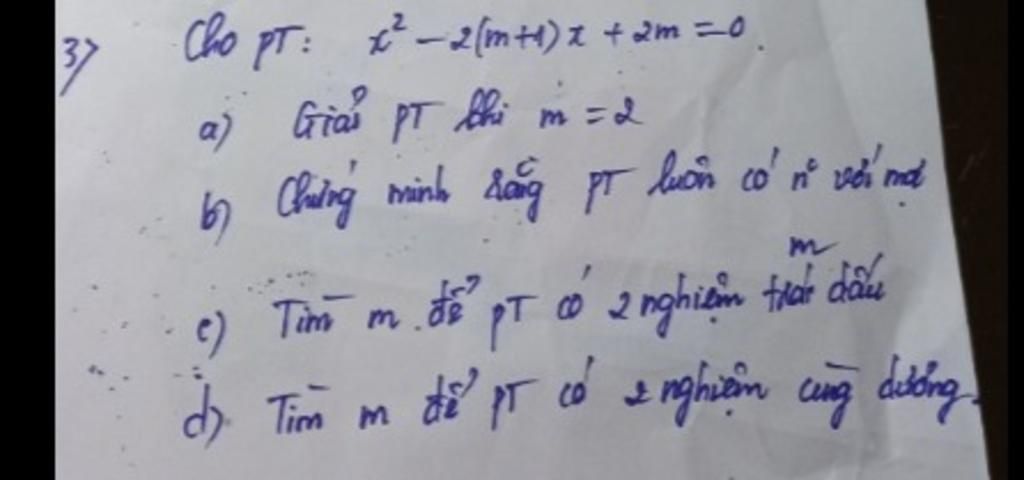 3) Cho PT: x² - 2(m+1)x + 2m = 0.
a) Giải PT khi m = 2
b) Chứng minh rằng PT luôn có n° với mọi
m
c) Tìm m để PT có 2 nghiệm trái dấu
d) Tìm m để PT có 2 nghiệm cùng dương.